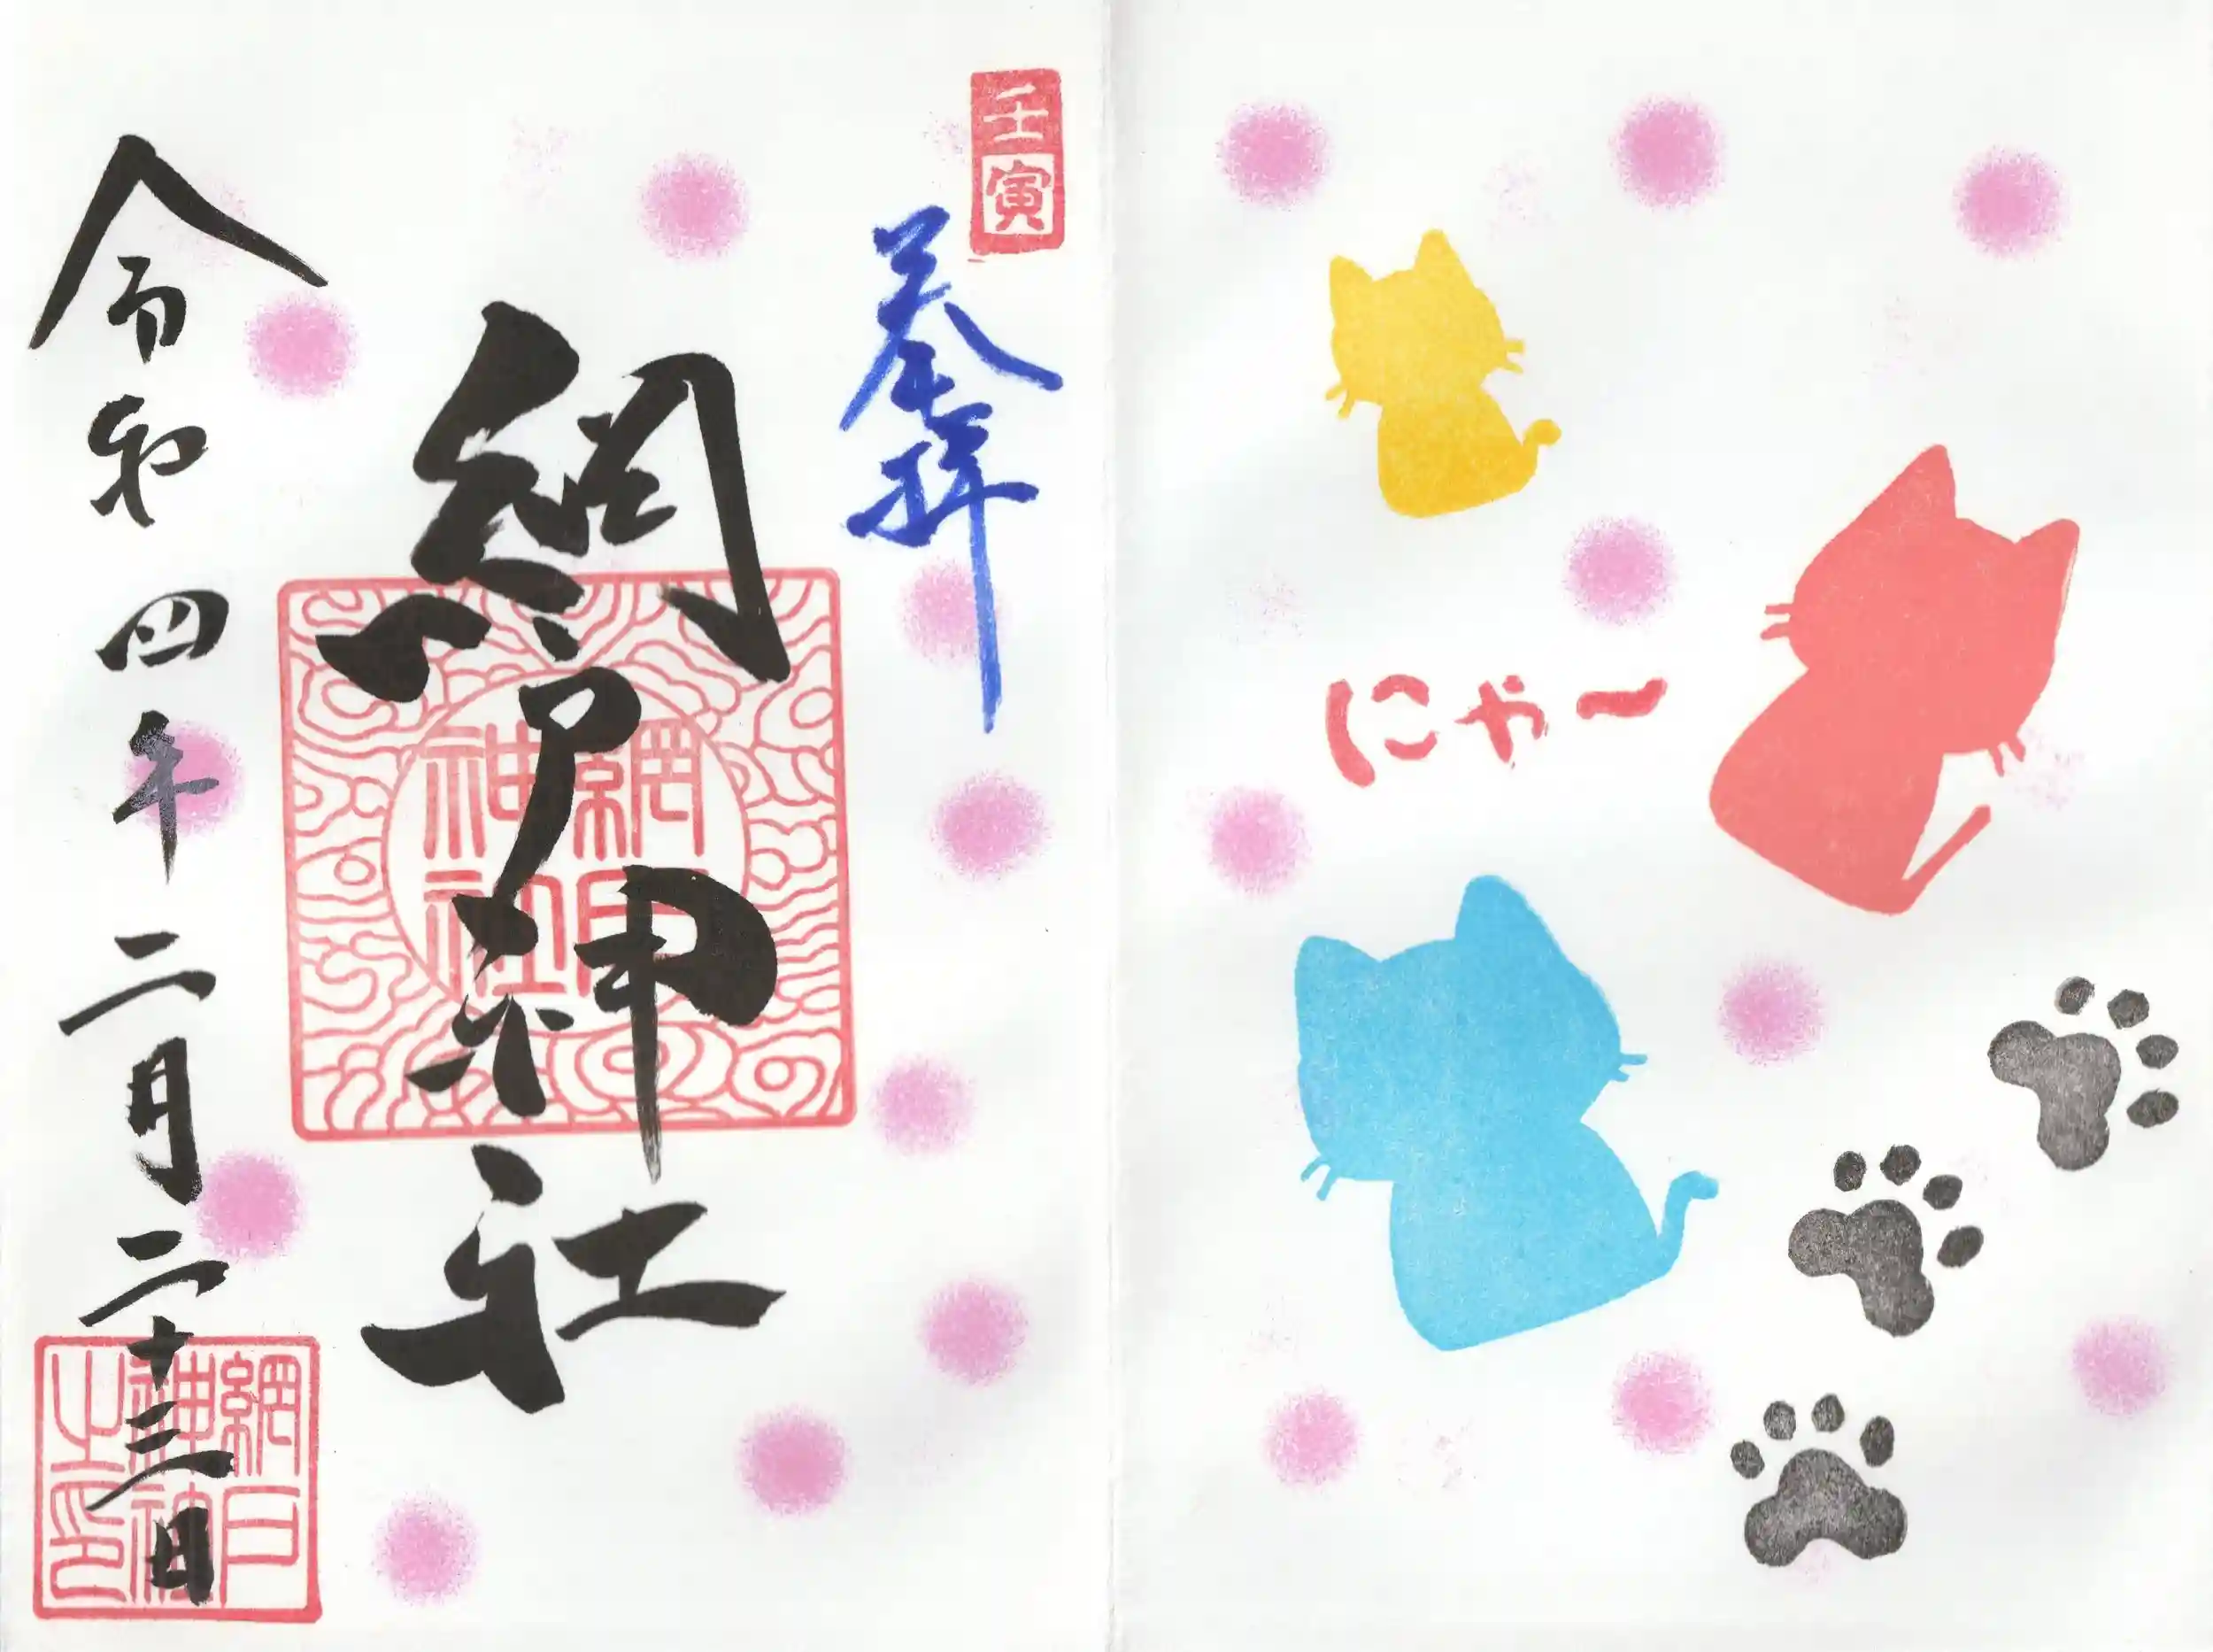 にゃー
壬寅
奉拝
網戸神社
網戸神社
令和四年二月二十三日
網戸神社之印